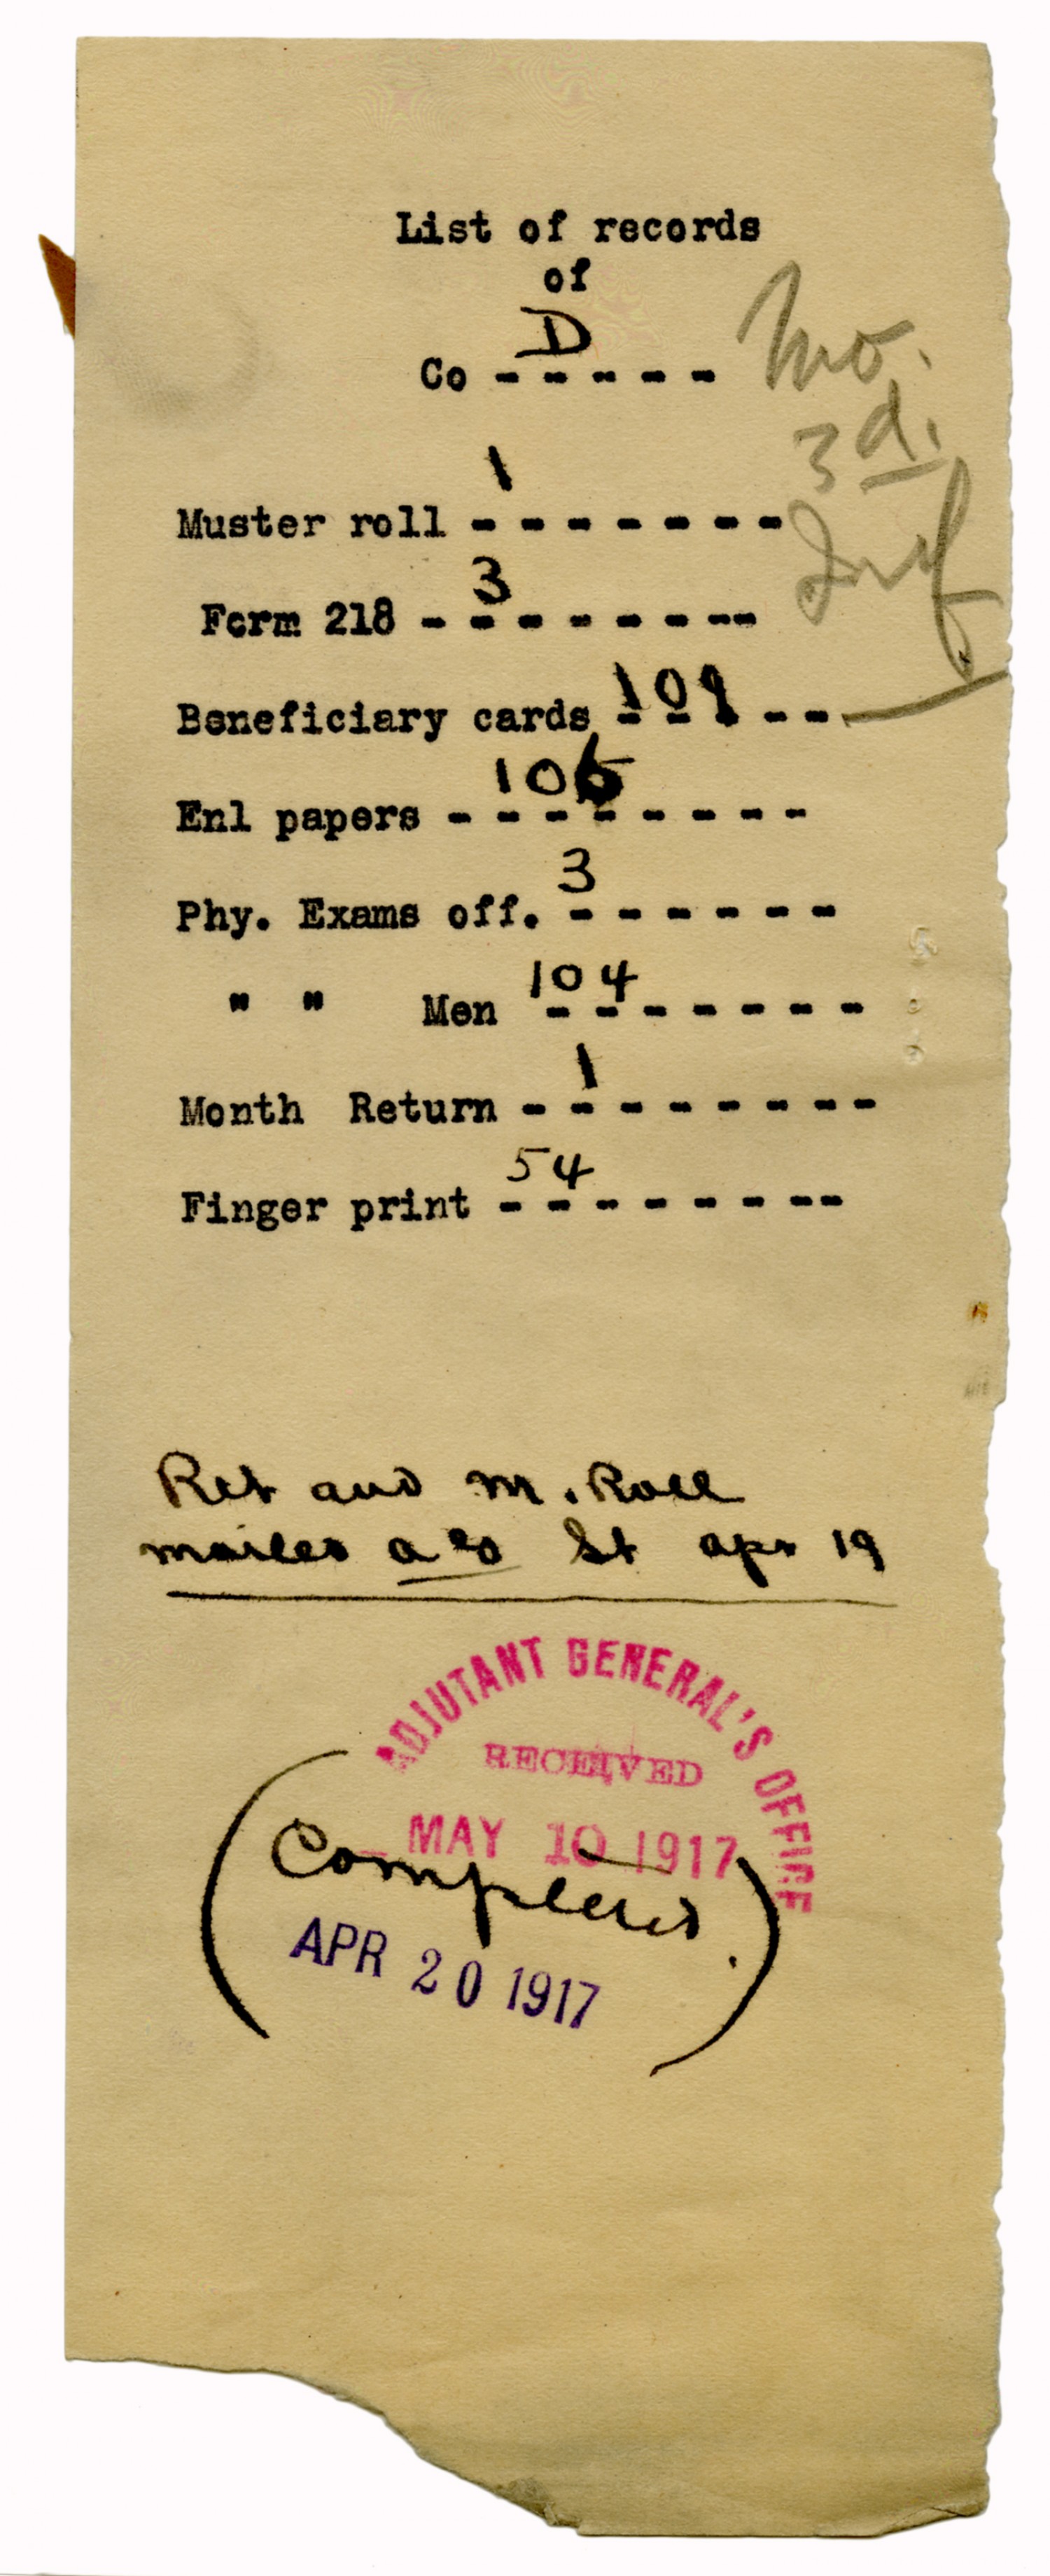 List of records
of
Co D - - - - -
Mo.
3d.
Inf
Muster roll 1 - - - - - - -
Form 218 - 3 - - - - - - -
Beneficiary cards 109 - - - - -
Enl papers 106 - - - - - - - -
Phy. Exams off. 3 - - - - - -
" " Men 104 - - - - - - -
Month Return 1 - - - - - - - -
Finger print 54 - - - - - - - -
Ret and M. Roll
mailed a St Apr 19
ADJUTANT GENERAL'S OFFICE
RECEIVED
MAY 10 1917
(Completed.)
APR 20 1917